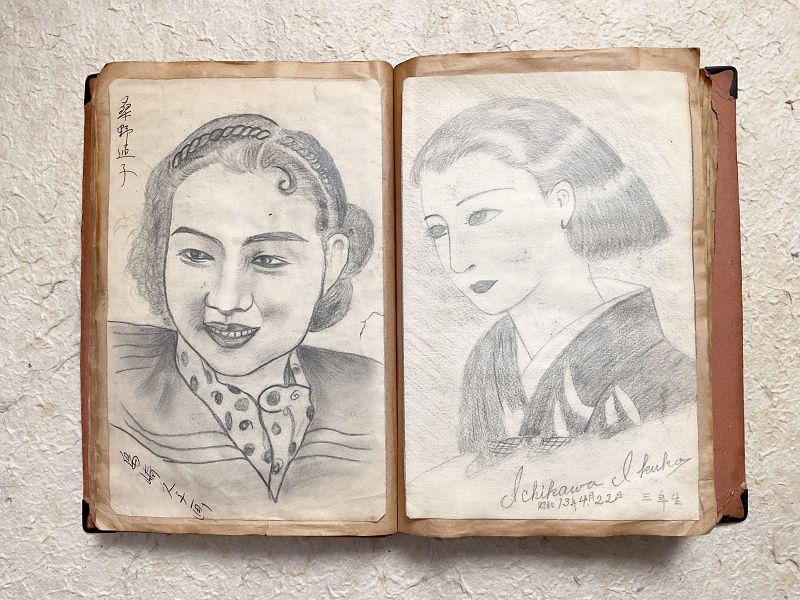 桑野通子
島崎久子画
Ichikawa Ikuko
昭和13年4月22日 三年生